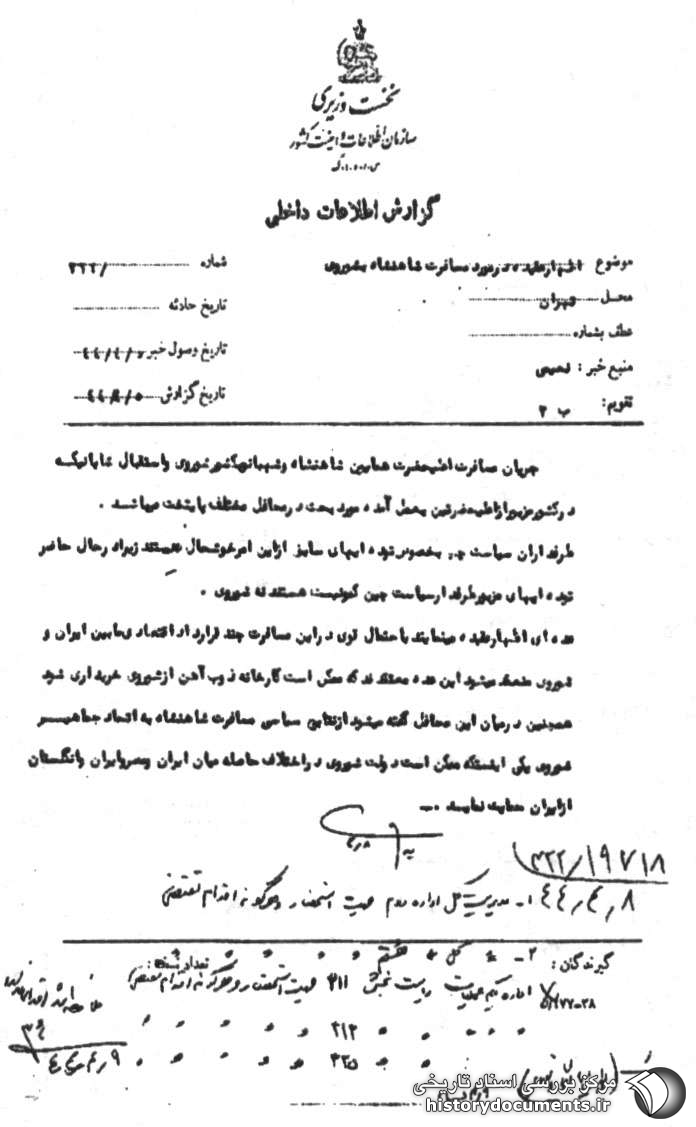 نخست وزیری
سازمان اطلاعات و امنیت کشور
س.ا.و.ا.ک
گزارش اطلاعات داخلی
موضوع اظهار عقیده در مورد مسافرت شاهنشاه بشوروی
شماره /۳۲۲
محل تهران
تاریخ حادثه
عطف بشماره
تاریخ وصول خبر ۴۴/۴/
منبع خبر :
تاریخ گزارش ۴۴/۴/۵
تقویم: ب ۲
جریان مسافرت اعلیحضرت همایون شاهنشاه و شهبانو بکشور شوروی و استقبال شایانیکه
در کشور مزبور از اعلیحضرتین بعمل آمده مورد بحث در محافل مختلف پایتخت میباشد .
طرفداران سیاست چپ بخصوص توده ایهای سابق از این امر خوشحال هستند زیرا در حال حاضر
توده ایهای مزبور طرفدار سیاست چین کمونیست هستند نه شوروی .
عده ای اظهار عقیده مینمایند باحتمال قوی در این مسافرت چند قرارداد اقتصادی مابین ایران و
شوروی منعقد میشود این عده معتقدند که ممکن است کارخانه ذوب آهن از شوروی خریداری شود
همچنین در میان این محافل گفته میشود از نتایج سیاسی مسافرت شاهنشاه به اتحاد جماهیر
شوروی یکی اینستکه ممکن است دولت شوروی در اختلاف حاصله میان ایران و مصر و ایران و انگلستان
از ایران حمایت نماید .
۳۲۲/۱۹۷۱۸
۴۴/۴/۸
۱- مدیریت کل اداره دوم جهت استحضار و هرگونه اقدام مقتضی
۲- " کل " هشتم " " " "
گیرندگان :
تعداد نسخه :
اداره یکم عملیات ریاست بخش ۳۱۱ جهت استحضار و هرگونه اقدام مقتضی
۵/۷۷-۲۸
" " " ۳۱۲ " " " "
" " ۳۲۵ " " " "
۴۴/۴/۹
مرکز بررسی اسناد تاریخی
historydocuments.ir